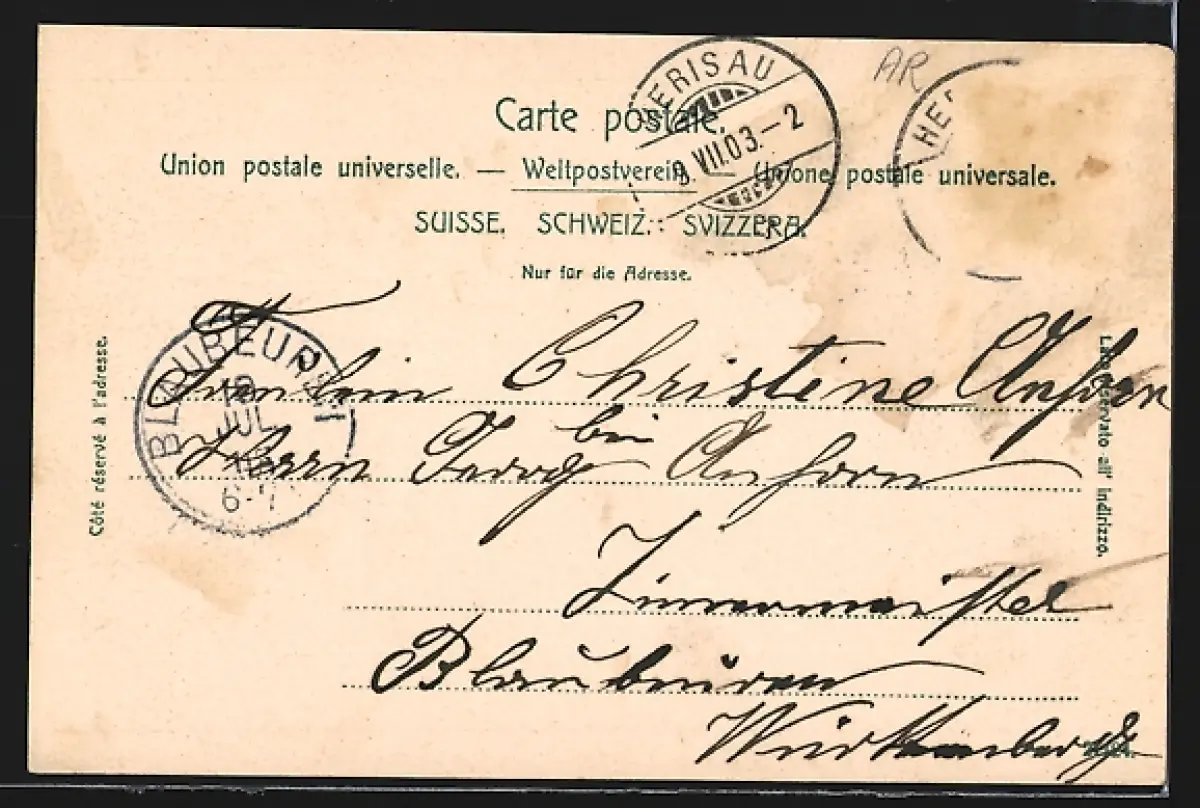 HERISAU
9.VII.03.-2
AR
HE
Carte postale.
Union postale universelle. — Weltpostverein — Unione postale universale.
SUISSE. SCHWEIZ. SVIZZERA.
Nur für die Adresse.
Côté réservé à l'adresse.
Lato riservato all' indirizzo.
BLAUBEUREN
JUL
6-7
Fräulein Christine Anhorn
bei
Herrn Georg Anhorn
Zimmermeister
Blaubeuren
Württemberg